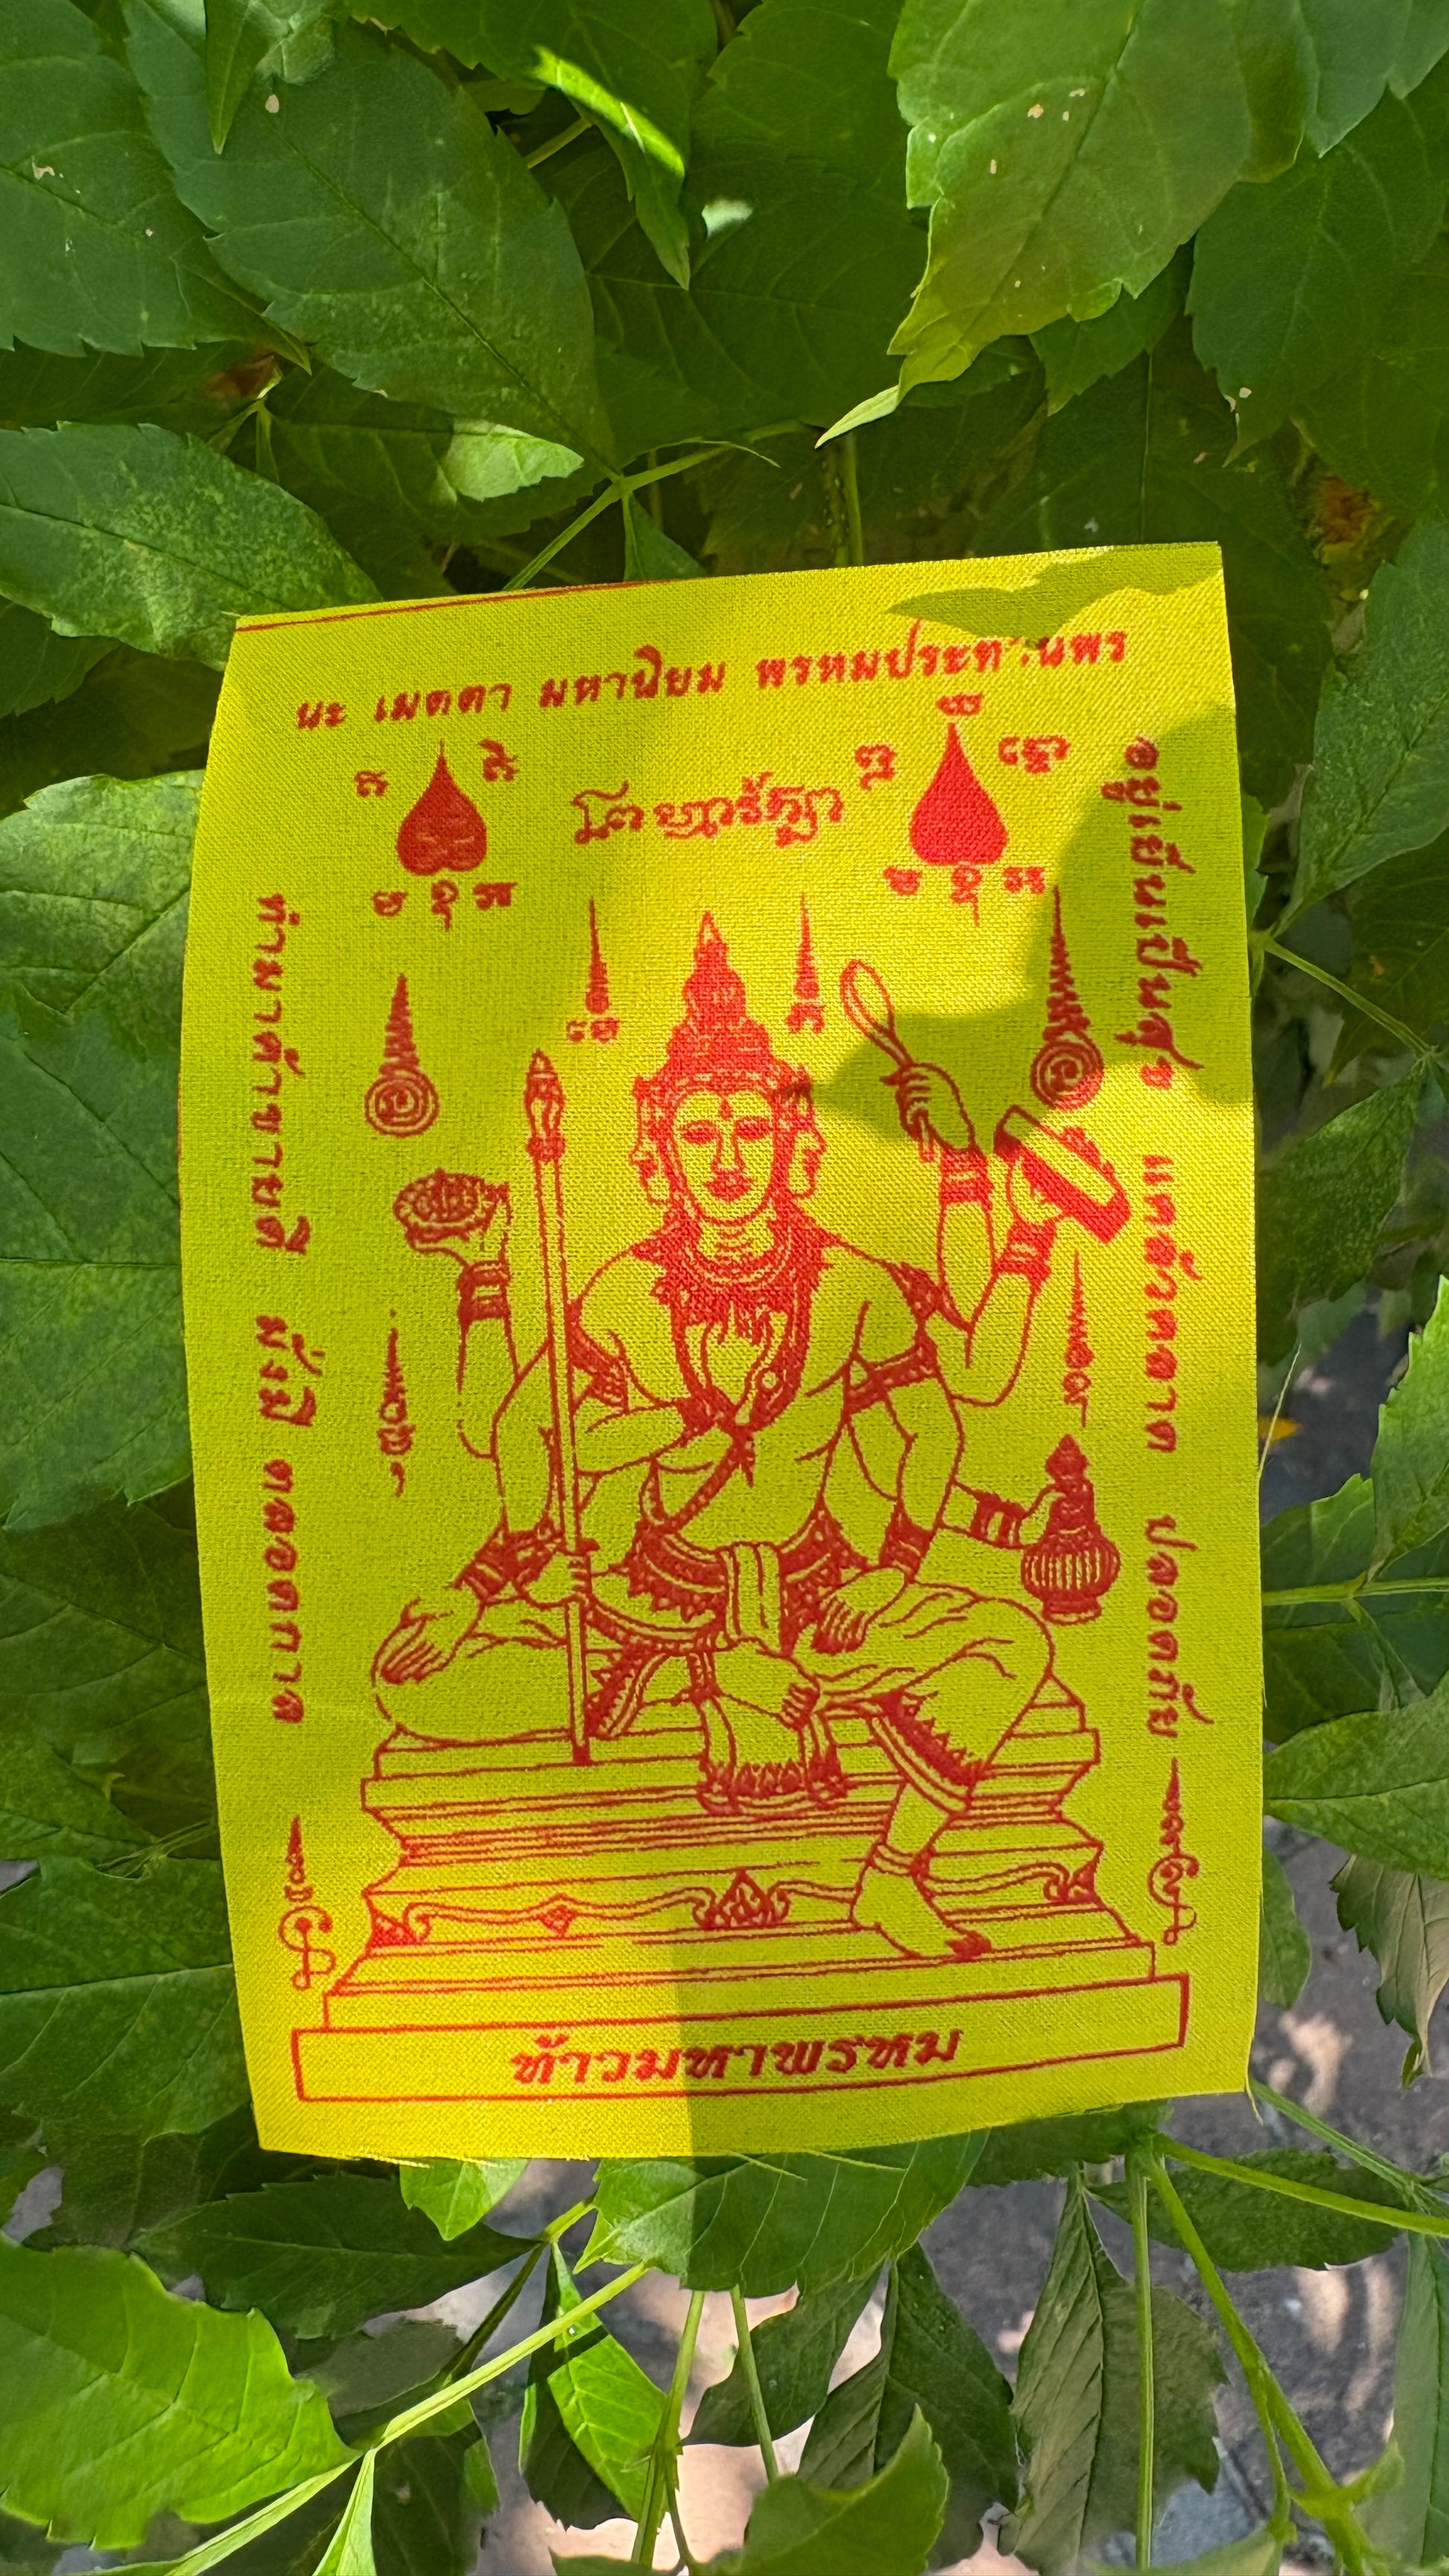 นะ เมตตา มหานิยม พรหมประทานพร
ทำมาค้าขายดี มั่งมี ตลอดกาล
อยู่เย็นเป็นสุข แคล้วคลาด ปลอดภัย
ท้าวมหาพรหม